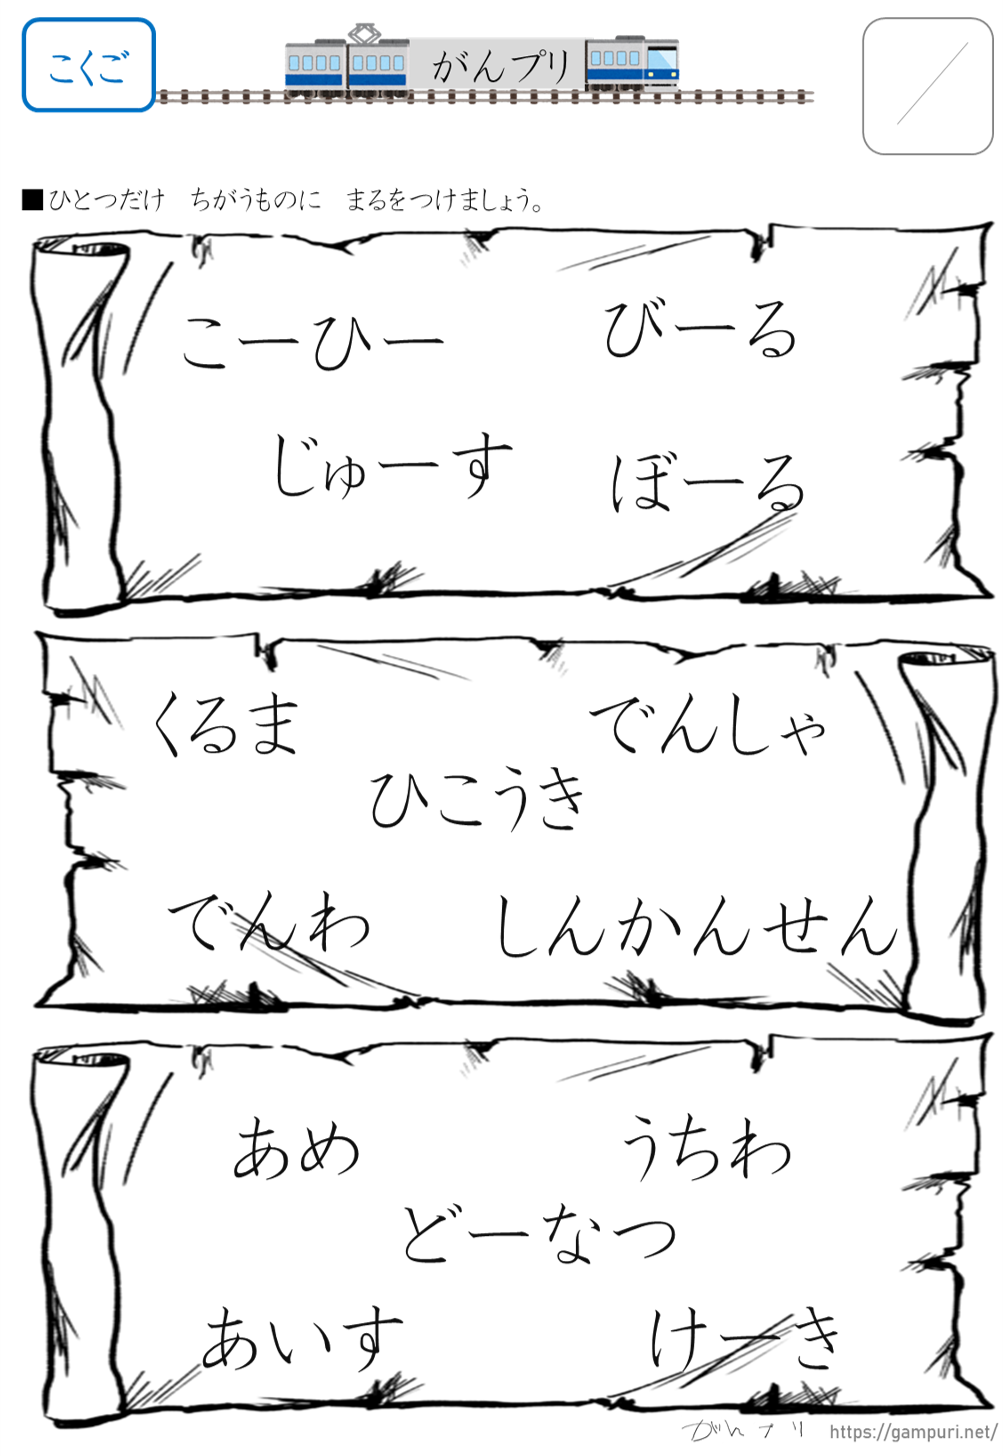 こくご
がんプリ
■ひとつだけ　ちがうものに　まるをつけましょう。
こーひー
びーる
じゅーす
ぼーる
くるま
でんしゃ
ひこうき
でんわ
しんかんせん
あめ
うちわ
どーなつ
あいす
けーき
がんプリ https://gampuri.net/